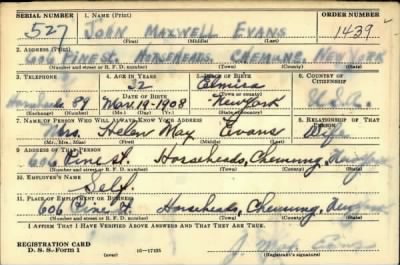 SERIAL NUMBER 1. NAME (Print) ORDER NUMBER
527 JOHN MAXWELL EVANS 1439
(First) (Middle) (Last)
2. ADDRESS (Print)
606 Pine St HORSEHEADS, CHEMUNG, NEW YORK
(Number and street or R. F. D. number) (Town) (County) (State)
3. TELEPHONE 4. AGE IN YEARS 5. PLACE OF BIRTH 6. COUNTRY OF CITIZENSHIP
32 Elmira
DATE OF BIRTH (Town or county)
Horseheads 84 Mar. 19-1908 New York U.S.A.
(Exchange) (Number) (Mo.) (Day) (Yr.) (State or country)
7. NAME OF PERSON WHO WILL ALWAYS KNOW YOUR ADDRESS 8. RELATIONSHIP OF THAT PERSON
Mrs. Helen May Evans Wife
(Mr., Mrs., Miss) (First) (Middle) (Last)
9. ADDRESS OF THAT PERSON
606 Pine St. Horseheads, Chemung, New York
(Number and street or R. F. D. number) (Town) (County) (State)
10. EMPLOYER'S NAME
Self.
11. PLACE OF EMPLOYMENT OR BUSINESS
606 Pine St. Horseheads, Chemung, New York
(Number and street or R. F. D. number) (Town) (County) (State)
I AFFIRM THAT I HAVE VERIFIED ABOVE ANSWERS AND THAT THEY ARE TRUE.
REGISTRATION CARD
D. S. S. Form 1 (over) 16-17105